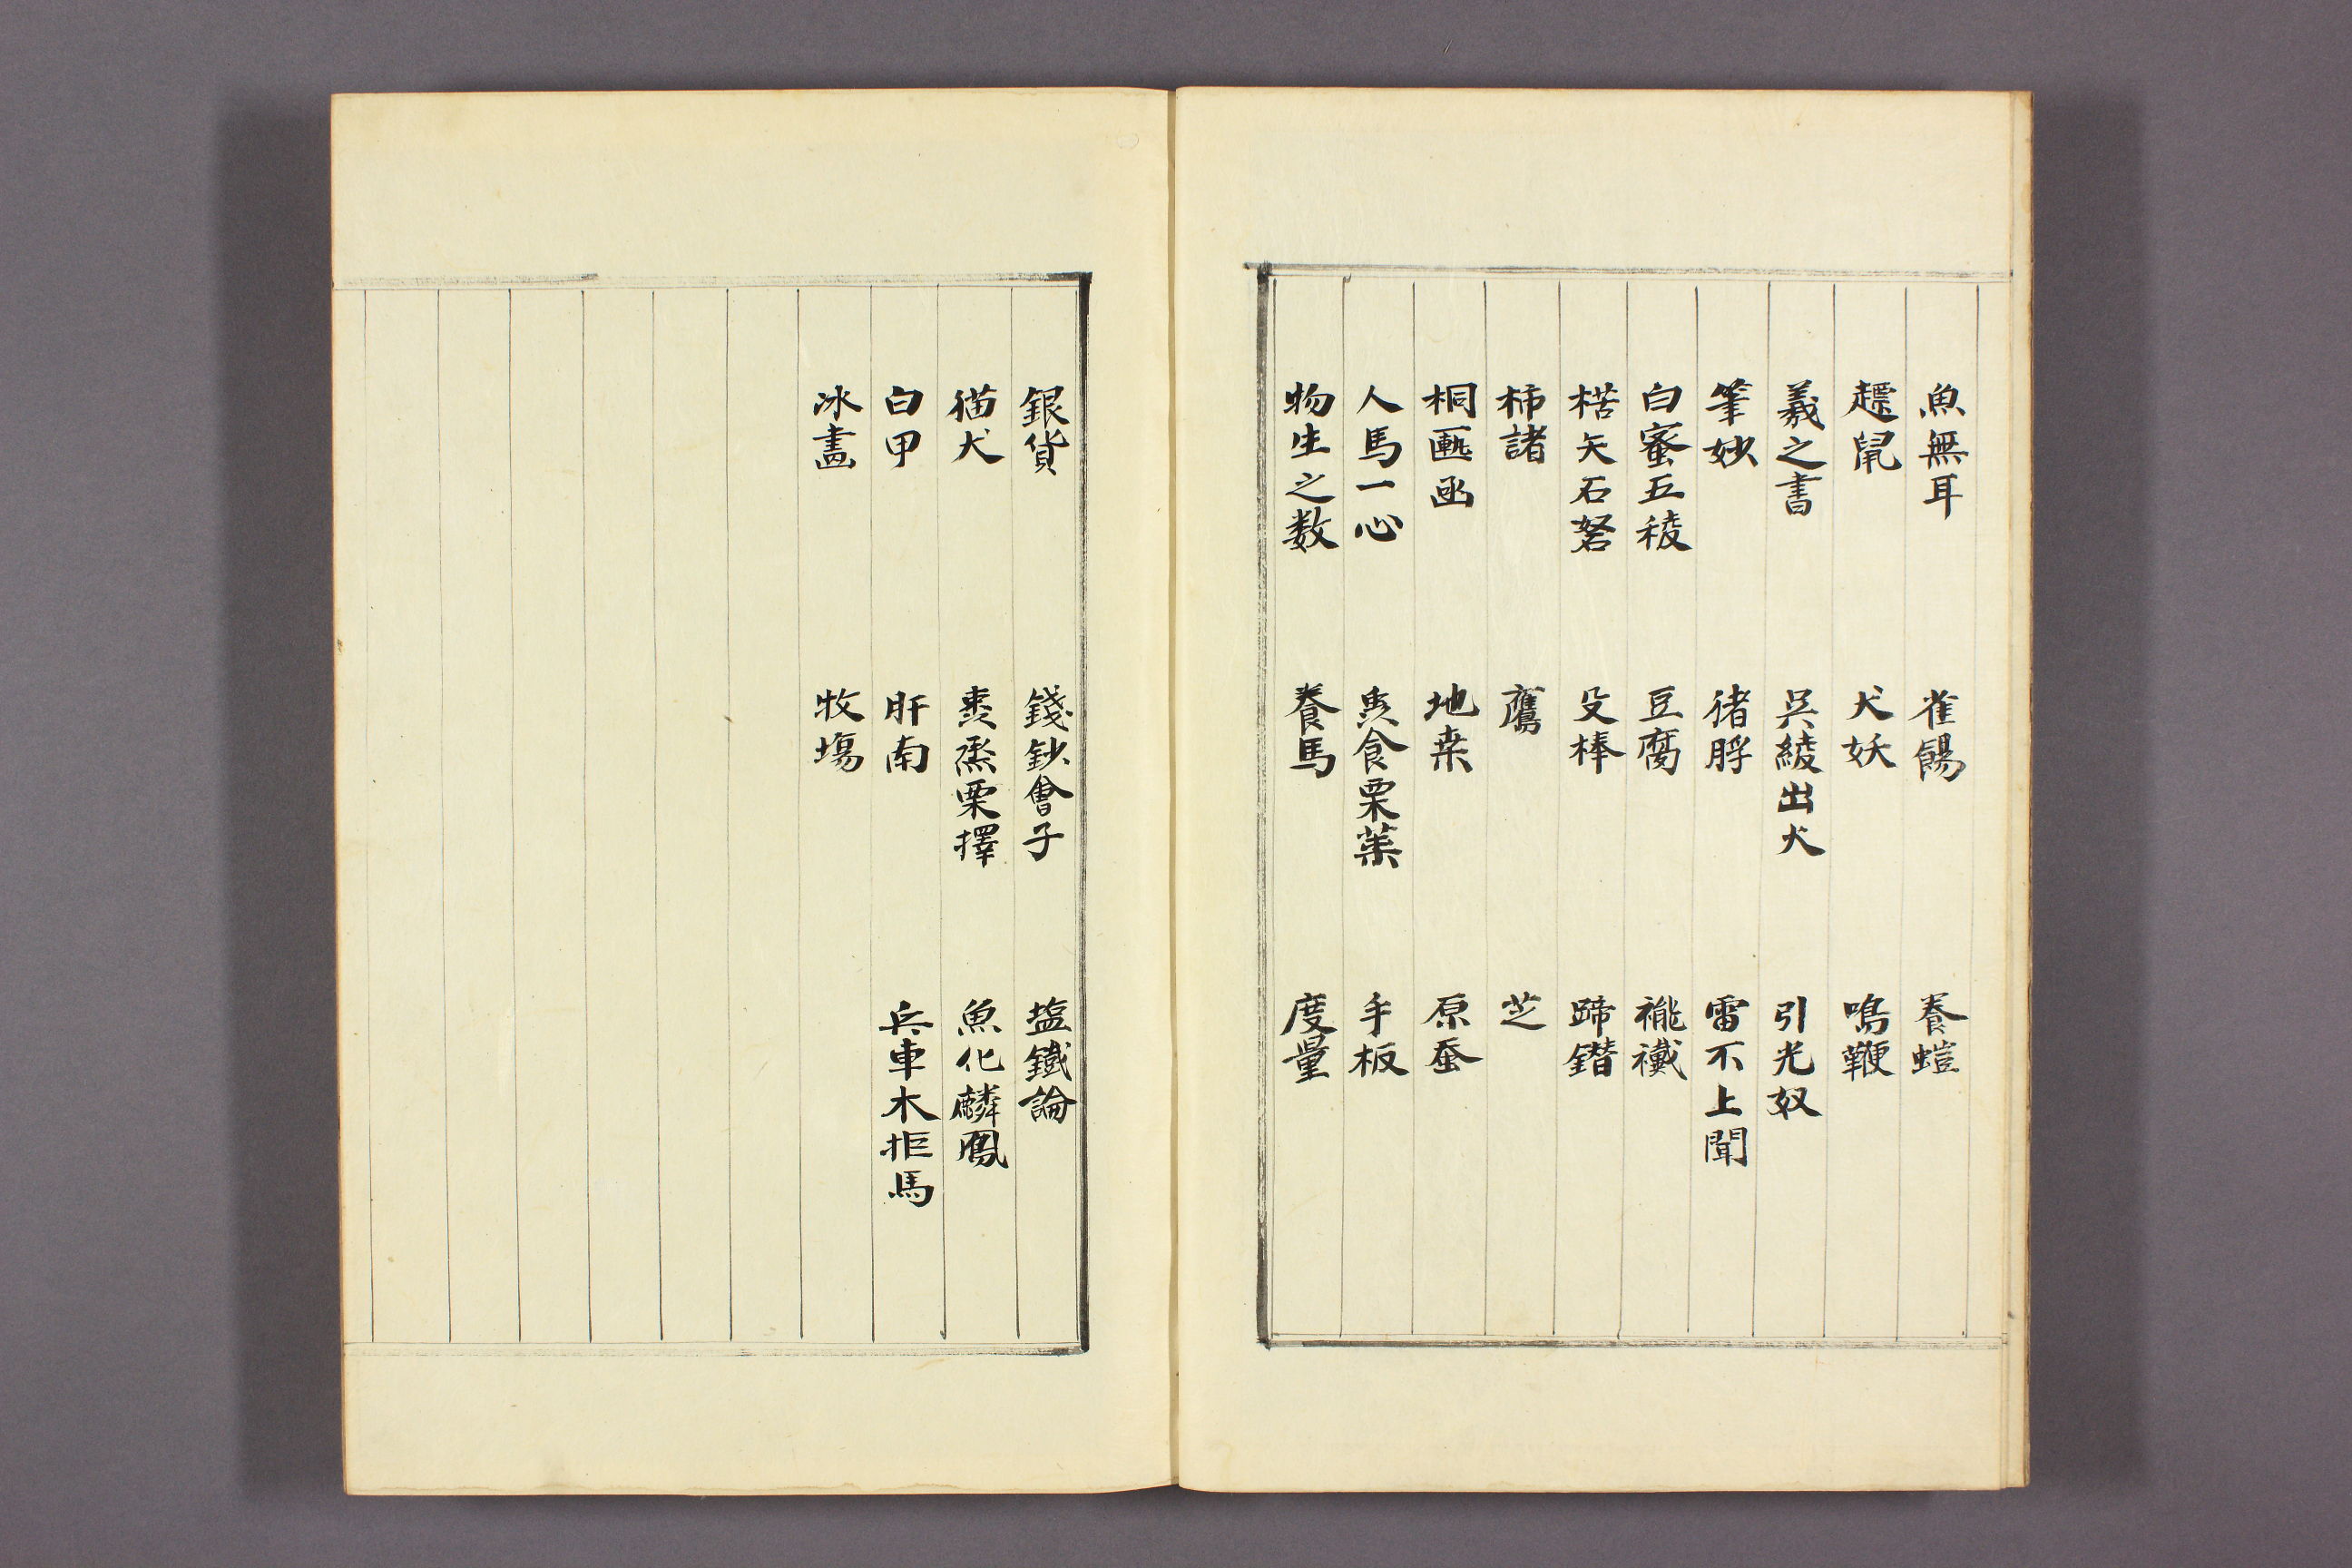 魚無耳　雀餳　養螘
犬妖　鳴鞭
羲之書　吳綾出火　引光奴
筆妙　猪脬　雷不上聞
白蜜五稜　豆腐　褦襶
楛矢石砮　殳棒　蹄鐟
柿諸　鷹　芝
桐　函　地桒　原蚕
人馬一心　魚食栗葉　手板
物生之数　養馬　度量
銀貨　錢鈔會子　塩鐵論
猫犬　棗烝栗擇　魚化麟鳳
白甲　肝南　兵車木拒馬
冰畫　牧塲